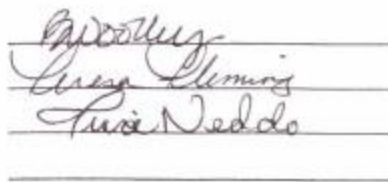 BWoolley
Teresa Fleming
Tina Neddo